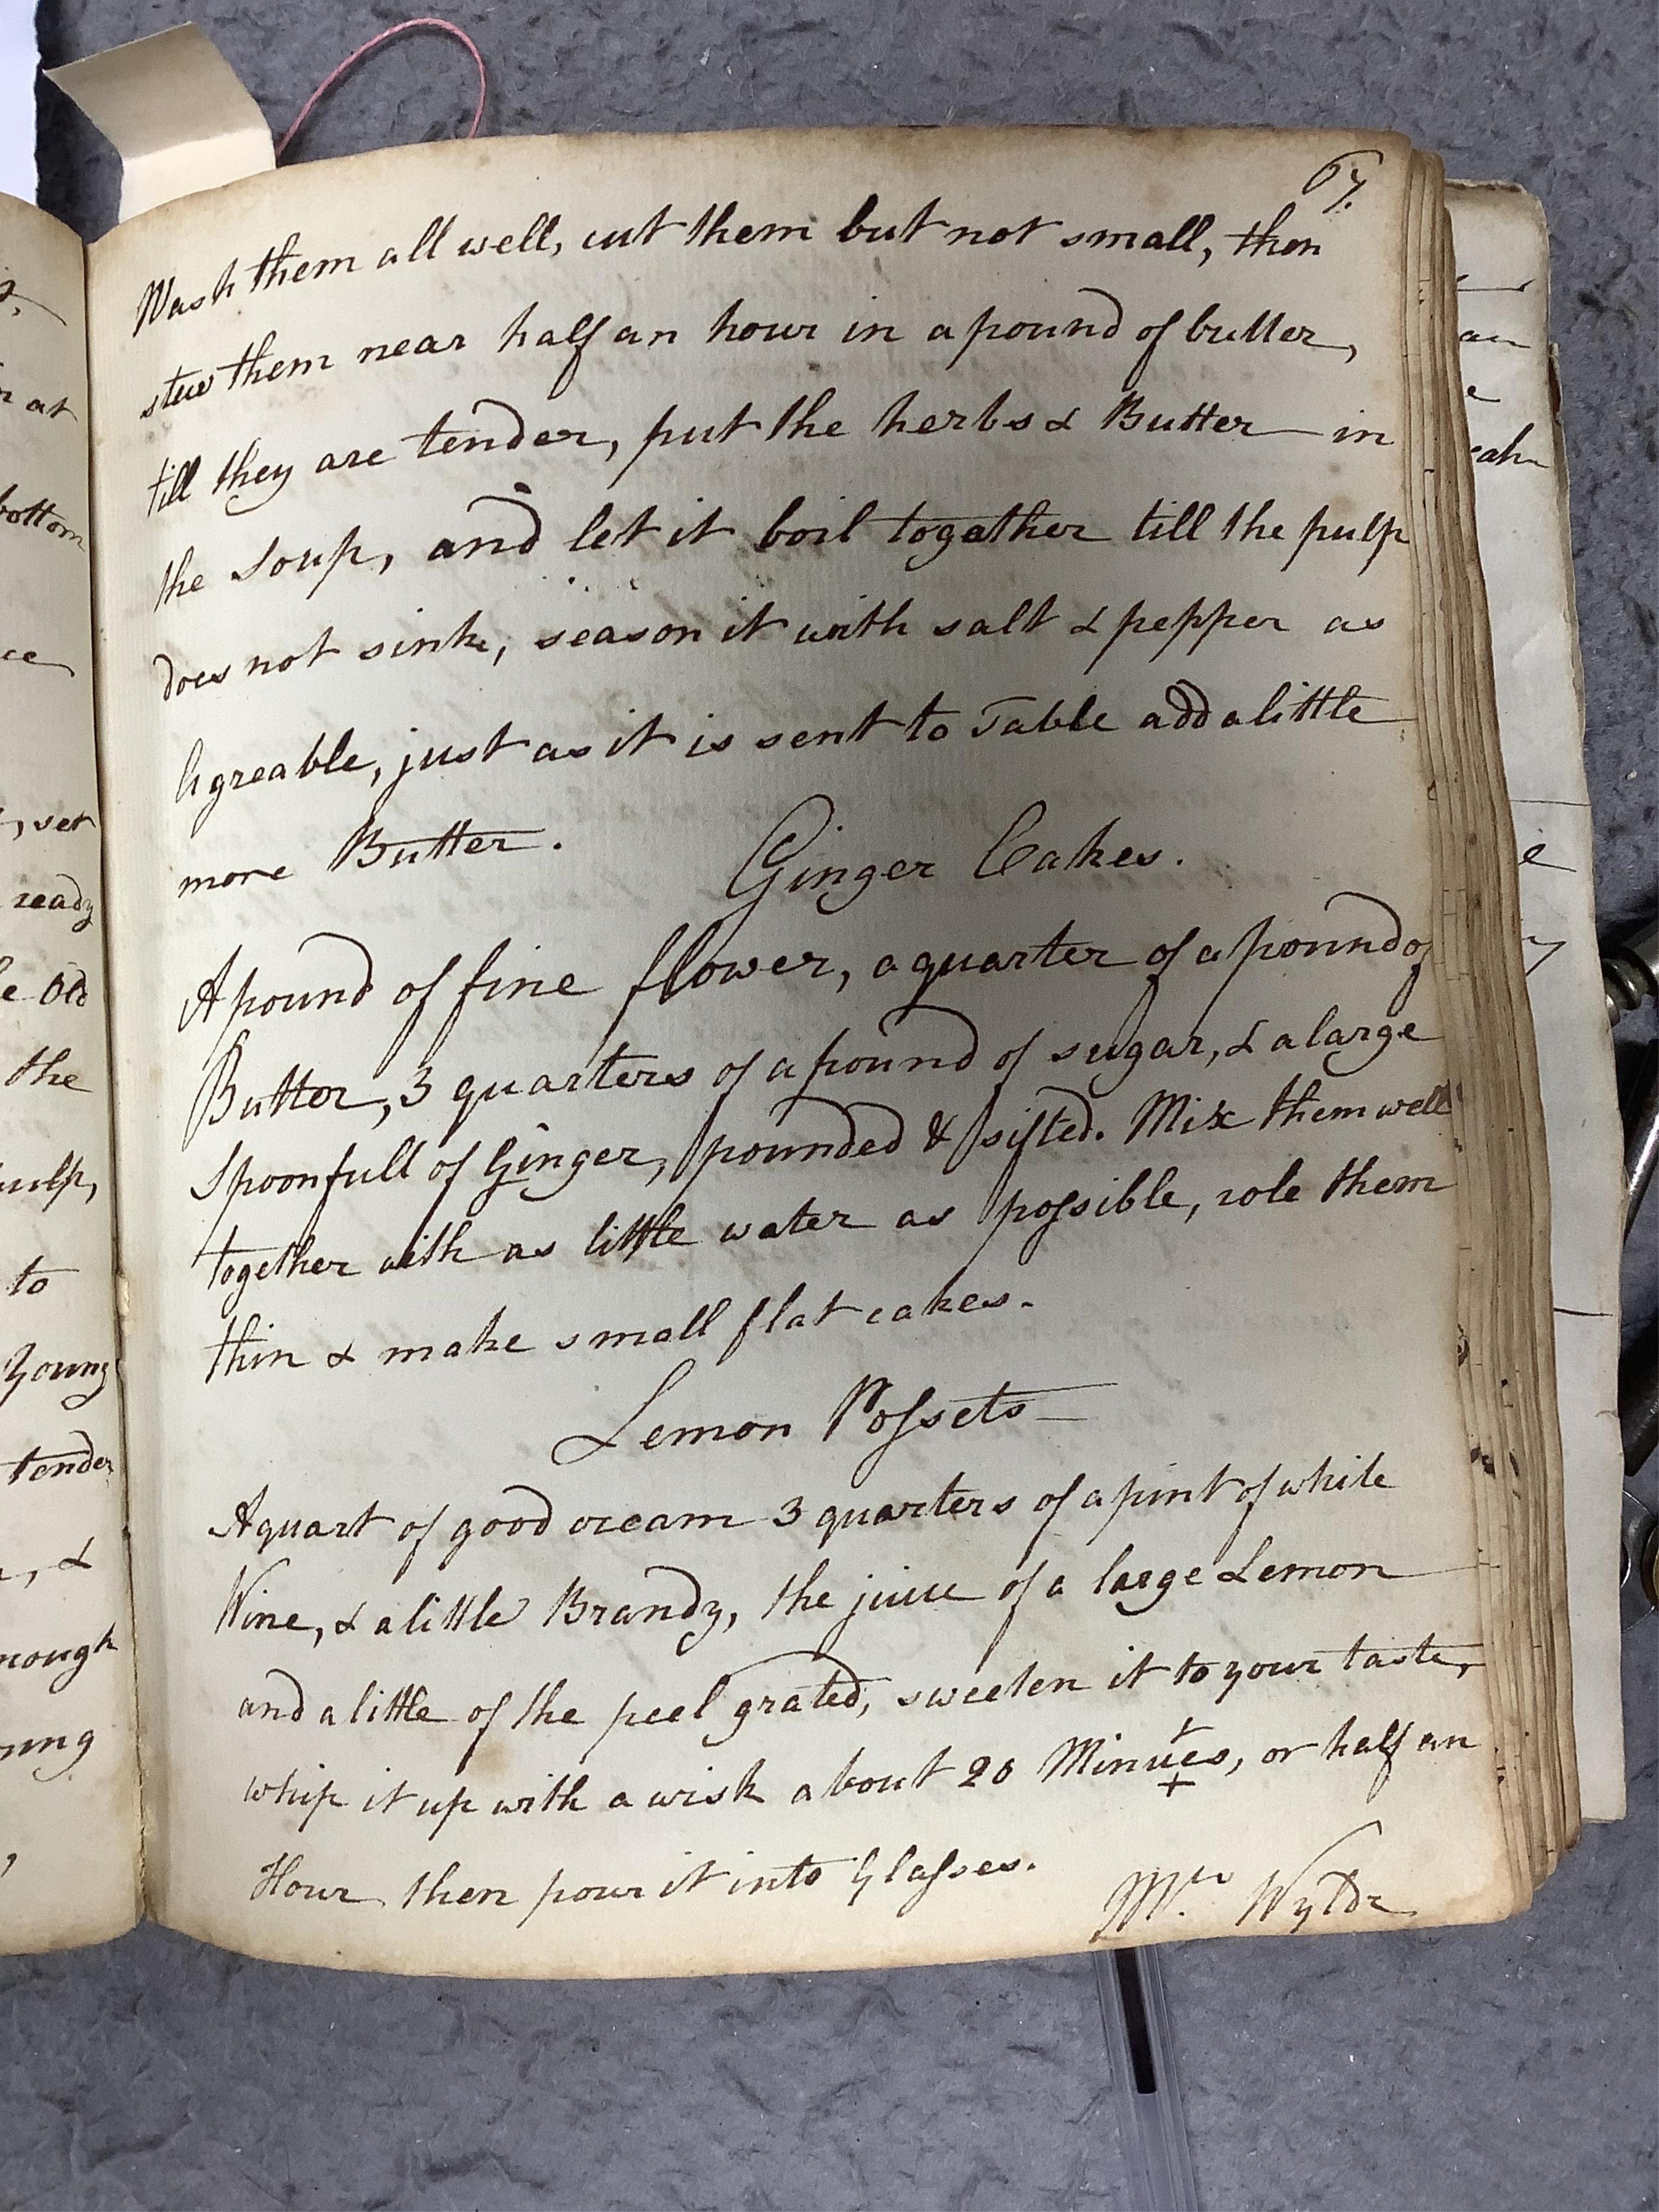 67.
Wash them all well, cut them but not small, then
stew them near half an hour in a pound of butter,
till they are tender, put the herbs & Butter in
the Soup, and let it boil together till the pulp
does not sink, season it with salt & pepper as
Agreable, just as it is sent to Table add a little
more Butter.
Ginger Cakes.
A pound of fine flower, a quarter of a pound of
Butter, 3 quarters of a pound of sugar, & a large
Spoonfull of Ginger, pounded & sifted. Mix them well
together with as little water as poſsible, role them
thin & make small flat cakes.
Lemon Poſsets
A quart of good cream 3 quarters of a pint of white
Wine, & a little Brandy, the juice of a large Lemon
and a little of the peel grated, sweeten it to your taste,
whip it up with a wisk about 20 Minutes, or half an
Hour then pour it into Glaſses.
Mrs Wylde
n at
bottom
ce
, set
ready
Old
the
pulp,
to
Young
tender
, &
nough